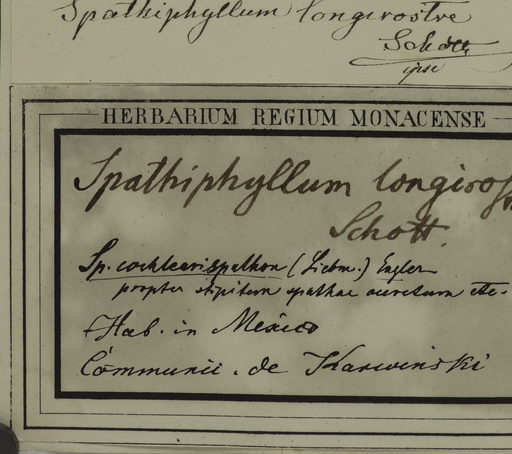 Spathiphyllum longirostre
Schott
ipse
HERBARIUM REGIUM MONACENSE
Spathiphyllum longirost
Schott.
Sp. cochlearispathum (Liebm.) Engler
propter stipitem spathae auctum etc.
Hab. in Mexico
Communic. de Karwinski